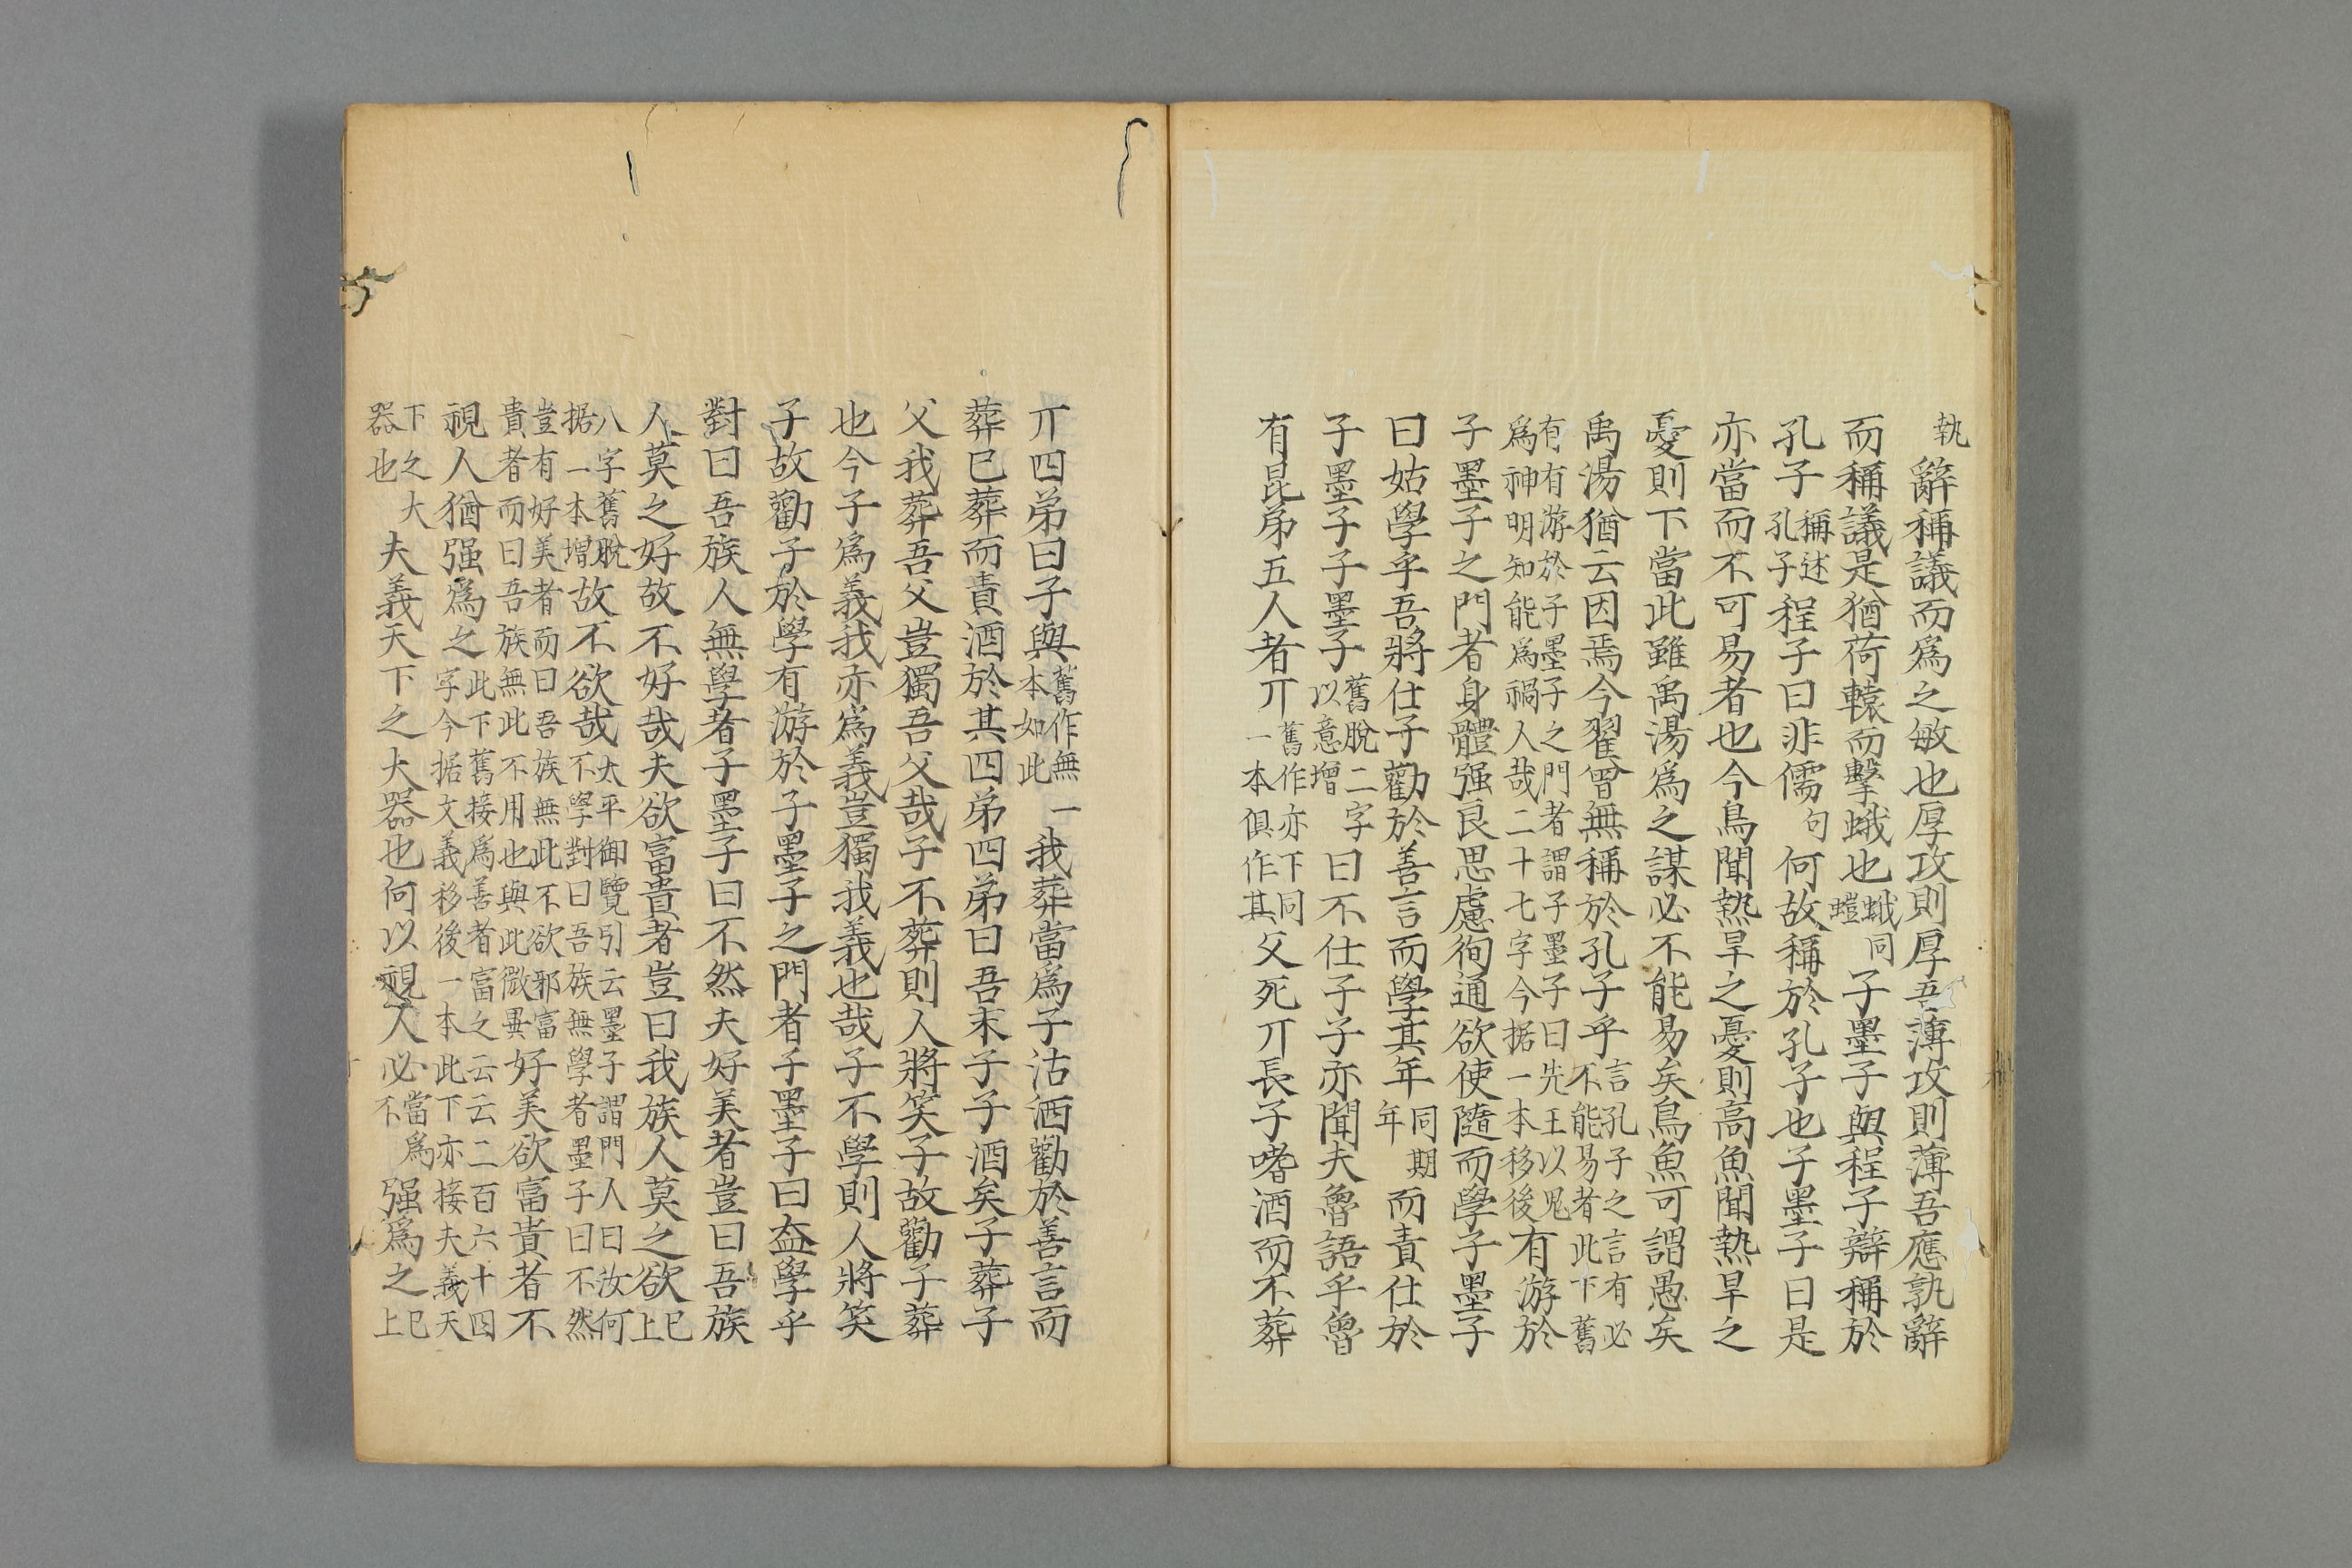 執辭稱議而爲之敏也厚攻則厚吾薄攻則薄吾應孰辭
而稱議是猶荷轅而擊蛾也蛾同螘子墨子與程子辯稱於
孔子稱述孔子程子曰非儒句何故稱於孔子也子墨子曰是
亦當而不可易者也今鳥聞熱旱之憂則高魚聞熱旱之
憂則下當此雖禹湯爲之謀必不能易矣鳥魚可謂愚矣
禹湯猶云因焉今翟曾無稱於孔子乎言孔子之言有必不能易者此下舊
有有游於子墨子之門者謂子墨子曰先王以鬼爲神明知能爲禍人哉二十七字今据一本移後有游於
子墨子之門者身體强良思慮徇通欲使隨而學子墨子
曰姑學乎吾將仕子勸於善言而學其年同期年而責仕於
子墨子子墨子舊脫二字以意增曰不仕子子亦聞夫魯語乎魯
有昆弟五人者丌舊作亦下同一本俱作其父死丌長子嗜酒而不葬
丌四弟曰子與舊作無一本如此我葬當爲子沽酒勸於善言而
葬巳葬而責酒於其四弟四弟曰吾末子子酒矣子葬子
父我葬吾父豈獨吾父哉子不葬則人將笑子故勸子葬
也今子爲義我亦爲義豈獨我義也哉子不學則人將笑
子故勸子於學有游於子墨子之門者子墨子曰盍學乎
對曰吾族人無學者子墨子曰不然夫好美者豈曰吾族
人莫之好故不好哉夫欲富貴者豈曰我族人莫之欲巳上
八字舊脫据一本增故不欲哉太平御覽引云墨子謂門人曰汝何不學對曰吾族無學者墨子曰不然
豈有好美者而曰吾族無此不欲邪富貴者而曰吾族無此不用也與此微異好美欲富貴者不
視人猶强爲之此下舊接爲善者富之云云二百六十四字今据文義移後一本此下亦接夫義天
下之大器也夫義天下之大器也何以視人必當爲不强爲之巳上